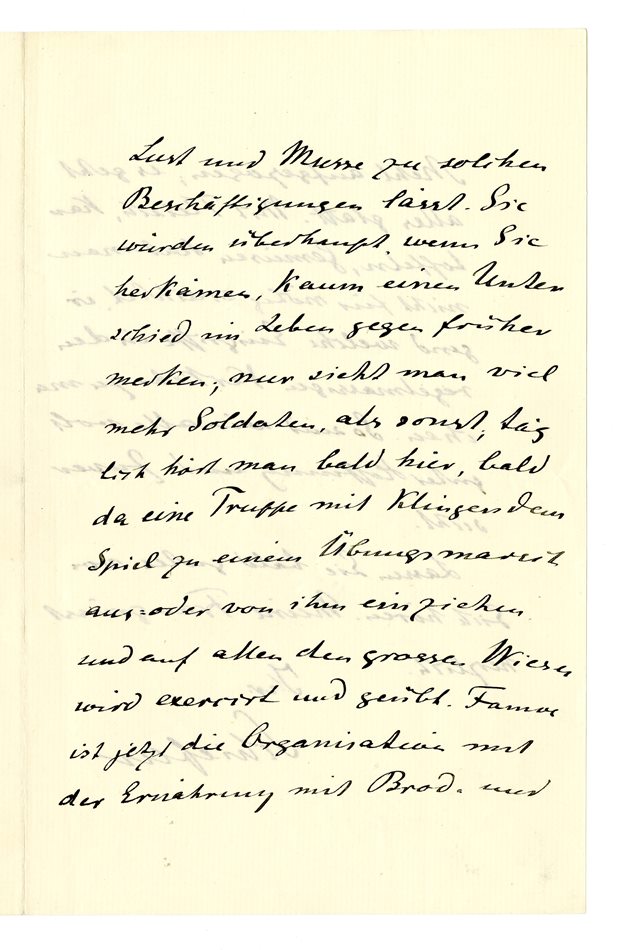 Lust und Musse zu solchen
Beschäftigungen lässt. Sie
würden überhaupt, wenn Sie
herkämen, kaum einen Unter
schied im Leben gegen früher
merken; nur sieht man viel
mehr Soldaten, als sonst, täg
lich hört man bald hier, bald
da eine Truppe mit Klingendem
Spiel zu einem Übungsmarsch
aus=oder von ihm einziehen
und auf allen den grossen Wiesen
wird exercirt und geübt. Famos
ist jetzt die Organisation mit
der Ernährung mit Brod- und